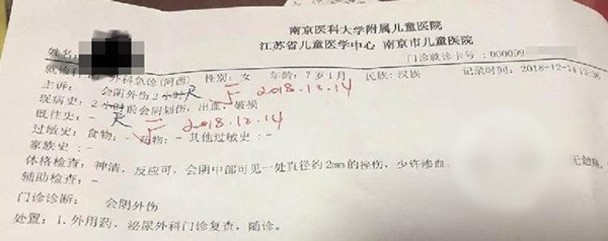 南京医科大学附属儿童医院
江苏省儿童医学中心 南京市儿童医院
门诊就诊卡号:000009
姓名:
就诊 外科急诊(河西) 性别:女 年龄:7岁1月 民族:汉族 记录时间:2018-12-14 13:36
主诉: 会阴外伤2小时 天 2018.12.14
现病史:2小时前会阴划伤,出血,破损
既往史:- 天 2018.12.14
过敏史:食物:- 药物:- 其他过敏史:-
家族史:-
体格检查:神清,反应可,会阴中部可见一处直径约2mm的挫伤,少许渗血
辅助检查:-
门诊诊断: 会阴外伤
处置:1.外用药,泌尿外科门诊复查,随诊。